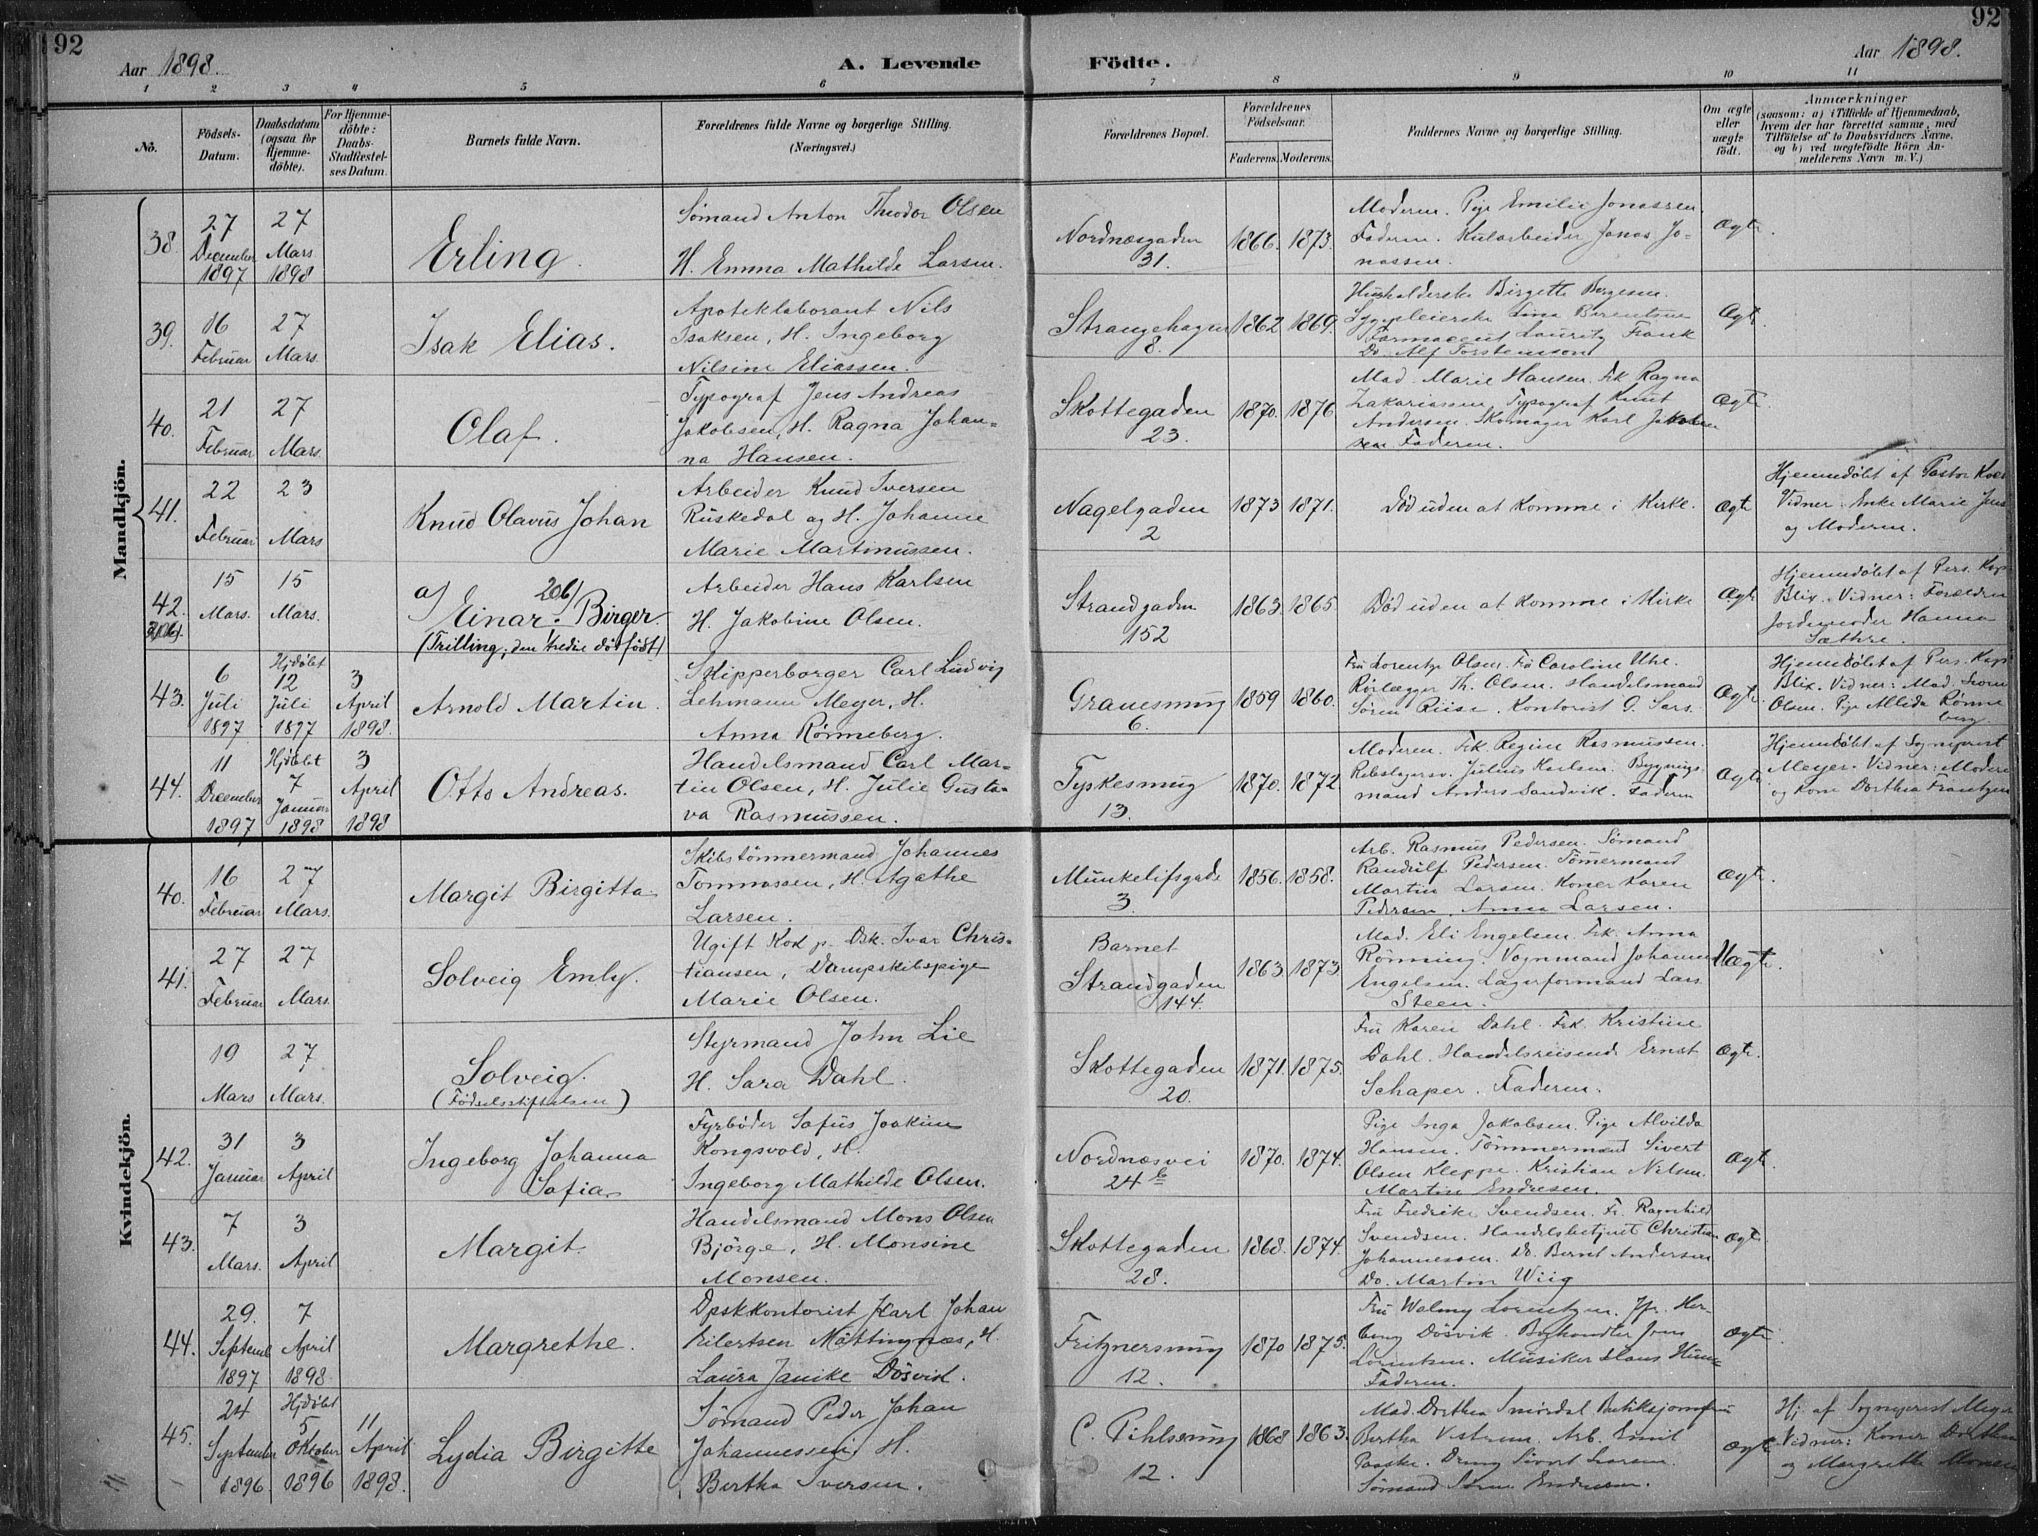 92
92
Aar 1898.
A. Levende
Födte.
Aar 1898.
1 2 3 4 5 6 7 8 9 10 11
No.
Födsels-Datum.
Daabsdatum (ogsaa for Hjemme-döbte).
For Hjemme-döbte: Daabs-Stadfæstel-ses Datum.
Barnets fulde Navn.
Forældrenes fulde Navne og borgerlige Stilling.
(Næringsvei.)
Forældrenes Bopæl.
Forældrenes Födselsaar.
Faderens. Moderens.
Faddernes Navne og borgerlige Stilling.
Om ægte eller uægte födt.
Anmærkninger
(saasom: a) i Tilfælde af Hjemmedaab,
hvem der har forrettet samme, med
Tilföielse af to Daabsvidners Navne,
og b) ved uægtefödte Börn An-
melderens Navn m. V.)
Mandkjön.
38.
27 December 1897
27 Mars 1898
Erling.
Sömand Anton Theodor Olsen
H. Emma Mathilde Larsen.
Nordnæsgaden
31.
1866. 1873.
Moderen. Pige Emilie Jonassen.
Faderen. Kularbeider Jonas Jo-
nassen.
Ægte.
39.
16 Februar
27 Mars.
Isak Elias.
Apoteklaborant Nils
Isaksen, H. Ingeborg
Nilsine Eliassen.
Strangehagen
8.
1862 1869.
Husholderske Birgitte Børgesen.
Sygepleierske Lina Berentsen
Farmaceut Lauritz Frank
Do. Alf Torstenson
Ægte
40.
21 Februar
27 Mars.
Olaf.
Typograf Jens Andreas
Jakobsen, H. Ragna Johan-
na Hansen.
Skottegaden
23.
1870. 1876.
Mad. Marie Hansen. Frk Ragna
Zakariassen. Typograf Knut
Andersen. Skomager Karl Jakob
sen. Faderen.
Ægte.
41.
22 Februar
23 Mars
Knud Olavus Johan
Arbeider Knud Iversen
Ruskedal og H. Johanne
Marie Martinussen.
Nagelgaden
2
1873 1871.
Död uden at komme i Kirke.
Ægte
Hjemmedöbt af Pastor
Vidner. Enke Marie Jens
og Moderen.
42.
20b).
15 Mars.
15 Mars.
a) 20b)
Einar. Birger.
(Trilling, den tredie dödfödt)
Arbeider Hans Karlsen
H. Jakobine Olsen.
Strandgaden
152
1863. 1865.
Död uden at komme i Kirke
Ægte
Hjemmedöbt af Pers. Kap
Blix. Vidner: Forældre
Jordemoder Hanna
Sæthre.
43.
6 Juli 1897
Hjdöbt 12 Juli 1897
3 April 1898.
Arnold Martin.
Skipperborger Carl Ludvig
Lehmann Meyer, H.
Anna Rönneberg.
Granesmug
6.
1859 1860.
Fru Lorentze Olsen. Frk Caroline Uhe.
Rörlægger Th. Olsen. Handelsmand
Sören Riise. Kontorist O. Sars.
Ægte.
Hjemmedöbt af Pers. Kap
Blix. Vidner: Mad.
Olsen. Pige Allida Rönne
berg.
44.
11 December 1897
Hjdöbt 7 Januar 1898
3 April 1898
Otto Andreas.
Handelsmand Carl Mar-
tin Olsen, H. Julie Gusta-
va Rasmussen.
Tyskesmug
13.
1870. 1872.
Moderen. Frk Regine Rasmussen.
Rebslagersv. Julius Karlsen. Bygnings-
mand Anders Sandvik. Faderen
Ægte.
Hjemmedöbt af Sogneprest
Meyer. Vidner: Moderen
og Kone Dorthea Frantzen
Kvindekjön.
40.
16 Februar
27 Mars.
Margit Birgitta
Skibstömmermand Johannes
Tommassen, H. Agathe
Larsen.
Munkelifsgade
3.
1856. 1858.
Arb. Rasmus Pedersen. Sömand
Randulf Pedersen. Tömermand
Martin Larsen. Koner Karen
Pedersen, Anna Larsen.
Ægte.
41.
27 Februar
27 Mars.
Solveig Emly.
Ugift Kok p. Dsk. Ivar Chris-
tiansen, Dampskibspige
Marie Olsen.
Barnet
Strandgaden
144.
1863. 1873.
Mad. Eli Engelsen. Frk. Anna
Rönning. Vognmand Johannes
Engelsen. Lagerformand Lars
Steen.
Uægte.
19 Mars
27 Mars.
Solveig.
(Födselsstiftelsen)
Styrmand John Lie
H. Sara Dahl.
Skottegaden
20.
1871. 1875.
Fru Karen Dahl. Frk. Kristine
Dahl. Handelsreisende Ernst
Schaper. Faderen.
Ægte.
42.
31 Januar
3 April
Ingeborg Johanna
Sofia.
Fyrböder Sofus Joakim
Kongsvold, H.
Ingeborg Mathilde Olsen.
Nordnæsvei
24 b
1870. 1874.
Pige Inga Jakobsen. Pige Alvilda
Hansen. Tömmermand Sivert
Olsen Kleppe. Kristian Nilsen.
Martin Endresen.
Ægte.
43.
7 Mars.
3 April
Margit.
Handelsmand Mons Olsen
Björge, H. Monsine
Monsen.
Skottegaden
28.
1868. 1874.
Fru Fredrike Svendsen. Fr. Ragnhild
Svendsen. Handelsbetjent Christian
Johannessen. Do. Bernt Andersen
Do. Martin Wiig
Ægte.
44.
29. Septemb 1897
7 April 1898.
Margrethe.
Dpskkontorist Karl Johan
Eilertsen Møttingnæs, H.
Laura Janike Dösvik.
Fritznersmug
12.
1870 1875.
Fru Walmy Lorentzen. Jfr. Her-
borg Dösvik. Boghandler Jens
Lorentzen. Musiker Hans
Faderen.
Ægte
45.
24 September 1896.
Hjdöbt 5 Oktober 1896
11 April 1898.
Lydia Birgitte
Sömand Peder Johan
Johannessen, H.
Bertha Iversen.
C. Pihlsmug
12.
1868 1863.
Mad. Dorthea Smördal Butiksjomfru
Bertha Vestrum. Arb. Emil
Paaske. Dreng Sivert Larsen.
Sömand Sören Endresen.
Ægte
Hj. af Sogneprest Meyer
Vidner: Koner Dorthea
og Margrethe Monsen